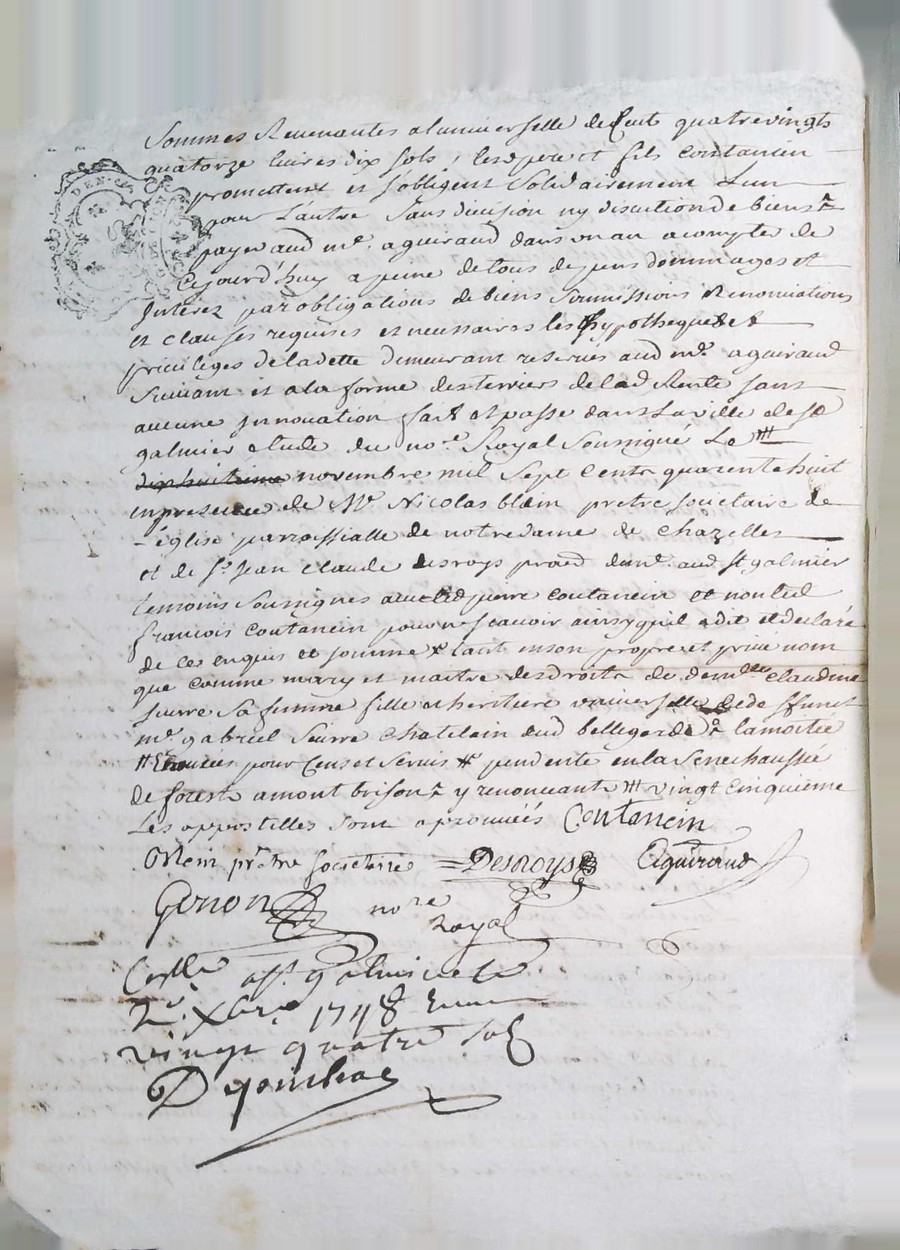 Sommes Revenantes aluniverselle de Cent quatrevingts
quatorze livres dix sols, lesd pere et fils Coutancin
promettent et s'obligent Solidairement Lun
pour Lautre Sans division ny discution de biens
payer aud me. aguiraud dans un an acompter de
Cejourd'huy apeine de tous depens dommages et
Interez par obligations de biens Soumissions Renonciations
et clauses requises et necessaires les hypotheques et
privileges de ladette demeurant reservés aud me. aguiraud
Suivant et ala forme des terriers de lad Rente sans
aucune Jnnovation fait et passé dans Laville de st
galmier etude du nore. Royal Soussigné Le
dixhuitieme novembre mil Sept Cents quarentehuit
enpresence de Mre Nicolas blein pretre societaire de
eglise parroissialle de notredame de Chazelles
et de sr. Jean Claude desroys praed aud st galmier
temoins Soussignes avecled pierre coutancin et non led
francois Coutancin pour ne scavoir ainsy quil adit et declaré
de ces enquis et sommé tant enson propre et privé nom
que comme mary et maitre des droits de demlle Claudine
seurre sa femme fille et heritiere universelle de deffunct
me. gabriel Seurre Chatelain dud bellegarde lamoitié
pour Cens et Servis pendente en la Senechaussée
de forests amontbrison y renonceants vingt Cinquieme
Les appostilles sont aprouvées Coutancin
Blein prêtre societaire Desroys Aguiraud
Genon nore
Royal
Conllé a st galmier le
2e. Xbre 1748 Reçu
vingt quatre sols